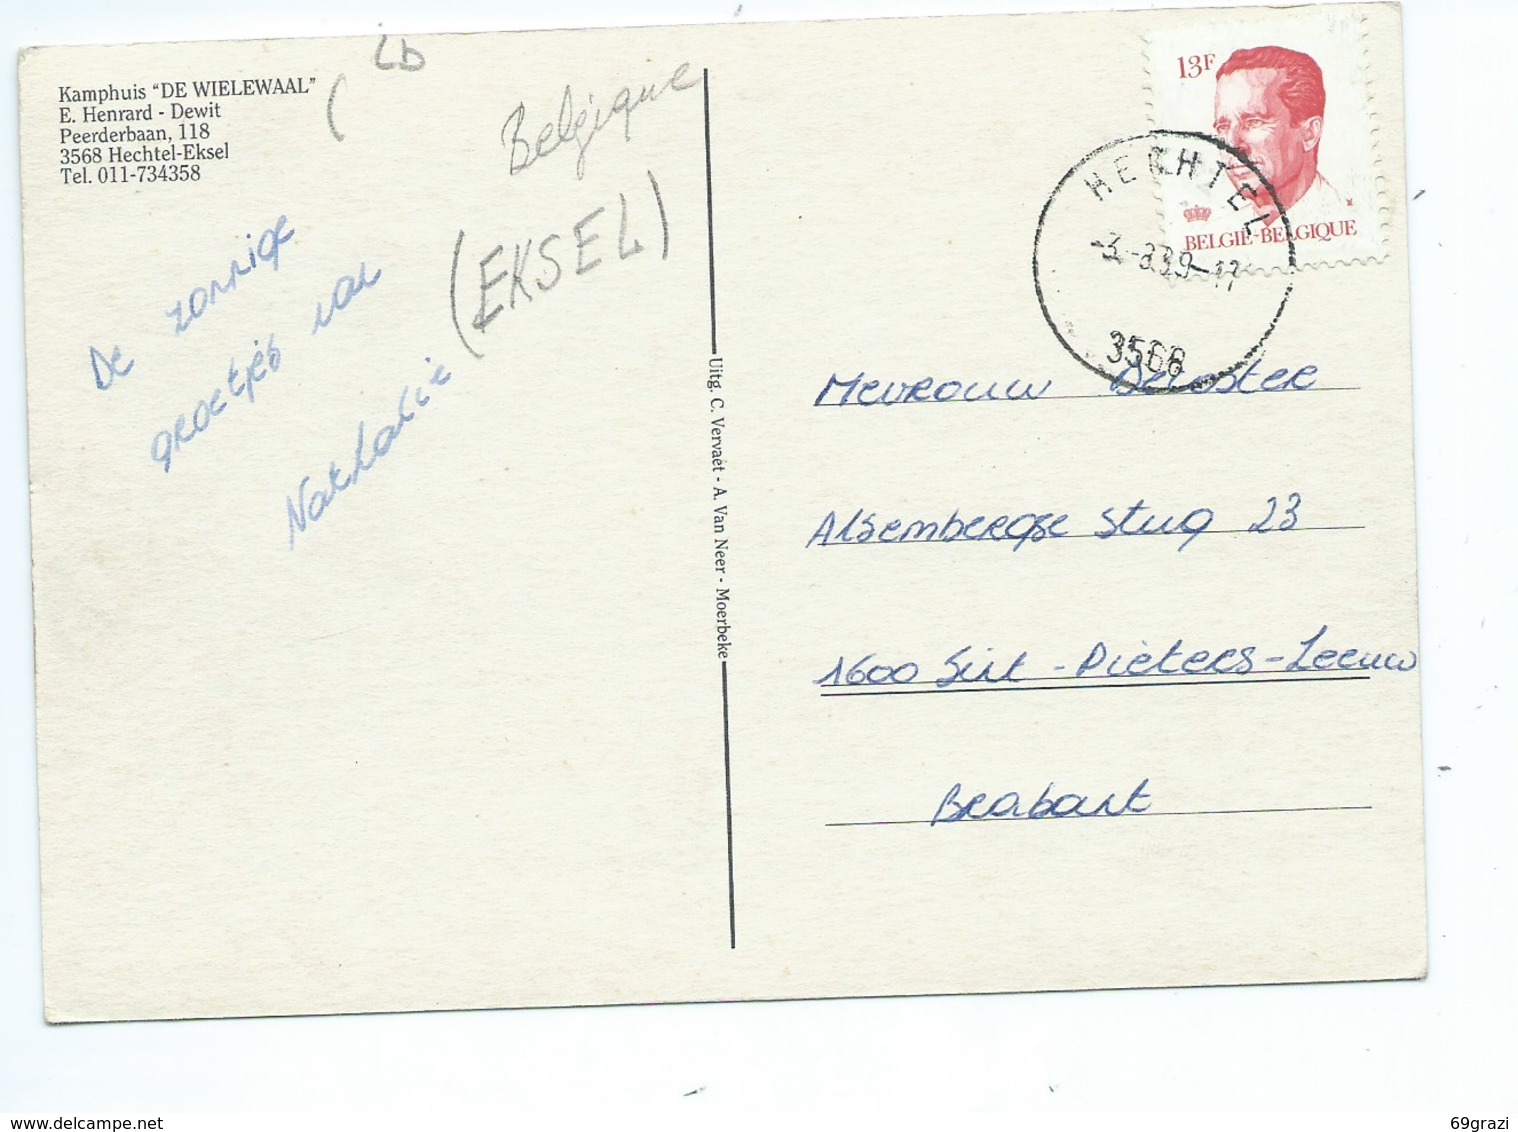 Kamphuis "DE WIELEWAAL"
E. Henrard - Dewit
Peerderbaan, 118
3568 Hechtel-Eksel
Tel. 011-734358
LD
Belgique
(EKSEL)
De zonnige
groetjes van
Nathalie
Uitg. C. Vervaet - A. Van Neer - Moerbeke
13F
BELGIË-BELGIQUE
HECHTEL
3568
Mevrouw
Alsembergse stwg 23
1600 Sint-Pieters-Leeuw
Brabant
69grazi